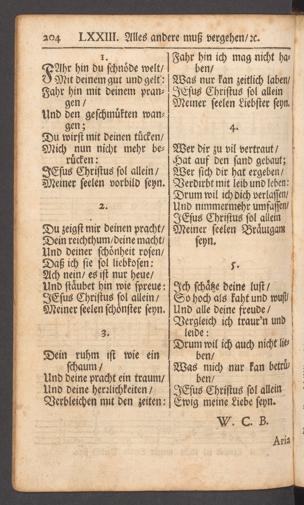 204 LXXIII. Alles andere muß vergehen/ ꝛc.
1.
FAhr hin du schnöde welt/
Mit deinem gut und gelt:
Fahr hin mit deinem pran-
gen/
Und den geschmükten wan-
gen:
Du wirst mit deinen tücken/
Mich nun nicht mehr be-
rücken:
JEsus Christus sol allein/
Meiner seelen vorbild seyn.
2.
Du zeigst mir deinen pracht/
Dein reichthum/ deine macht/
Und deiner schönheit rosen/
Daß ich sie sol liebkosen:
Ach nein/ es ist nur heue/
Und stäubet hin wie spreue:
JEsus Christus sol allein/
Meiner seelen schönster seyn.
3.
Dein ruhm ist wie ein
schaum/
Und deine pracht ein traum/
Und deine herrlichkeiten/
Verbleichen mit den zeiten:
Fahr hin ich mag nicht ha-
ben/
Was nur kan zeitlich laben/
JEsus Christus sol allein
Meiner seelen Liebster seyn.
4.
Wer dir zu vil vertraut/
Hat auf den sand gebaut;
Wer sich dir hat ergeben/
Verdirbt mit leib und leben:
Drum wil ich dich verlassen/
Und nimmermehr umfassen/
JEsus Christus sol allein
Meiner seelen Bräutgam
seyn.
5.
Ich schätze deine lust/
So hoch als kaht und wust/
Und alle deine freude/
Vergleich ich traur'n und
leide:
Drum wil ich auch nicht lie-
ben/
Was mich nur kan betrü-
ben/
JEsus Christus sol allein
Ewig meine Liebe seyn.
W. C. B.
Aria